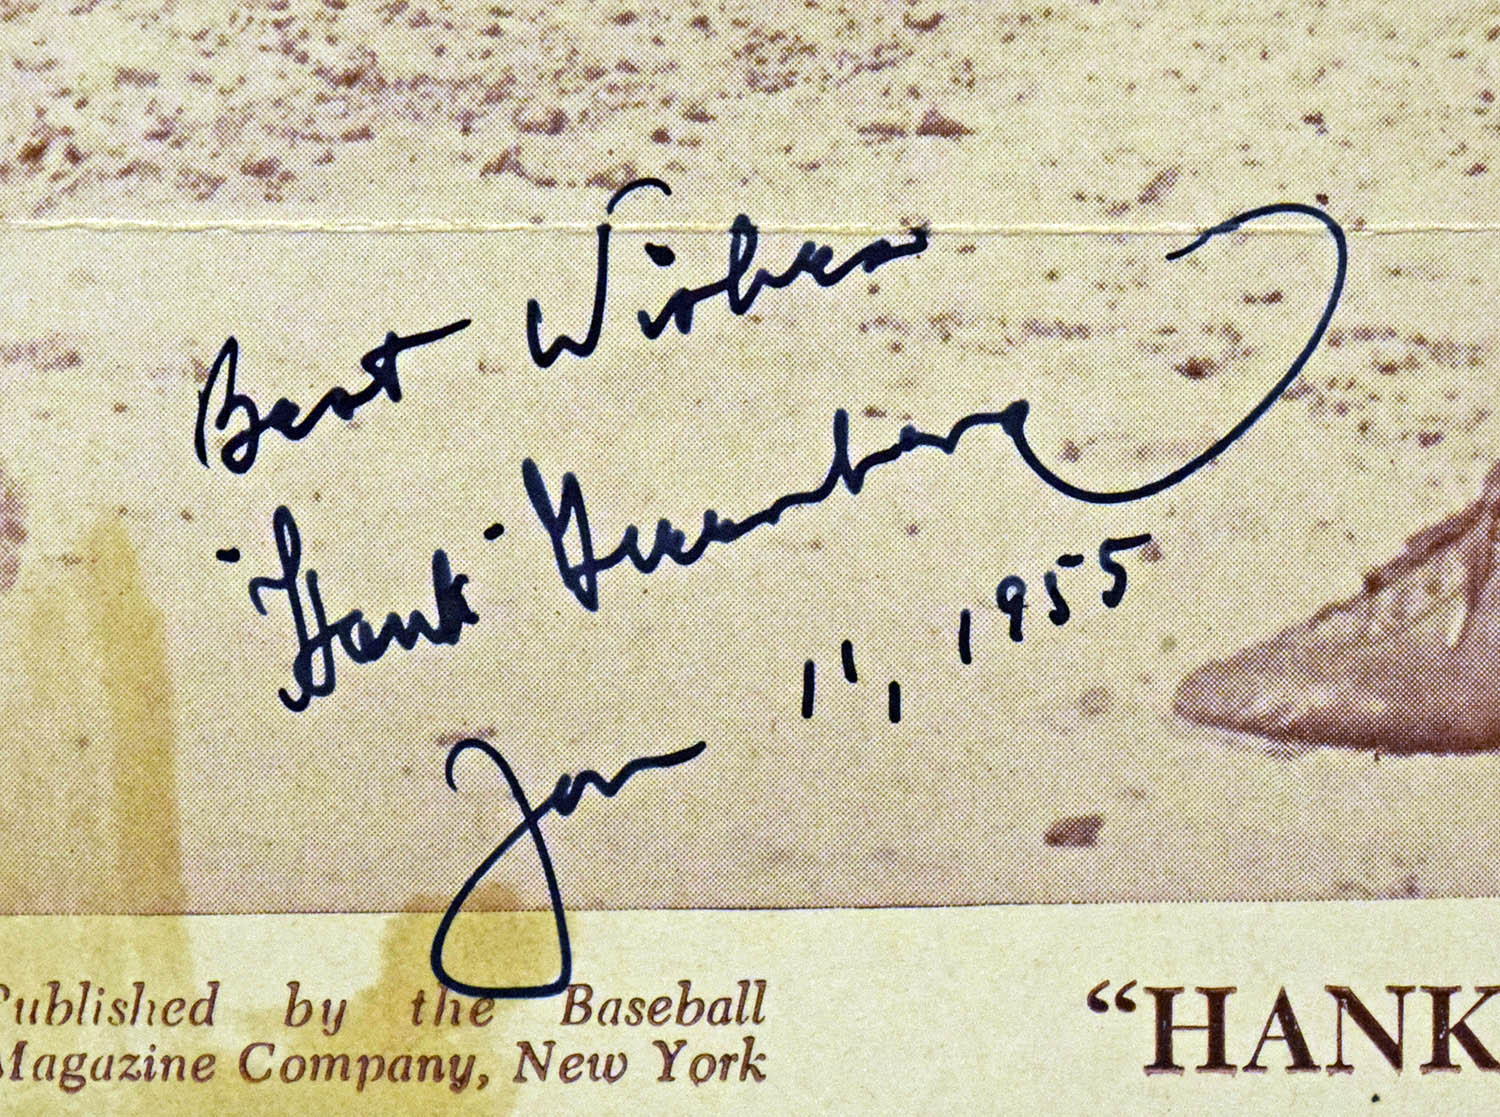 Best Wishes
"Hank" Greenberg
Jan 11, 1955
Published by the Baseball
Magazine Company, New York
"HANK